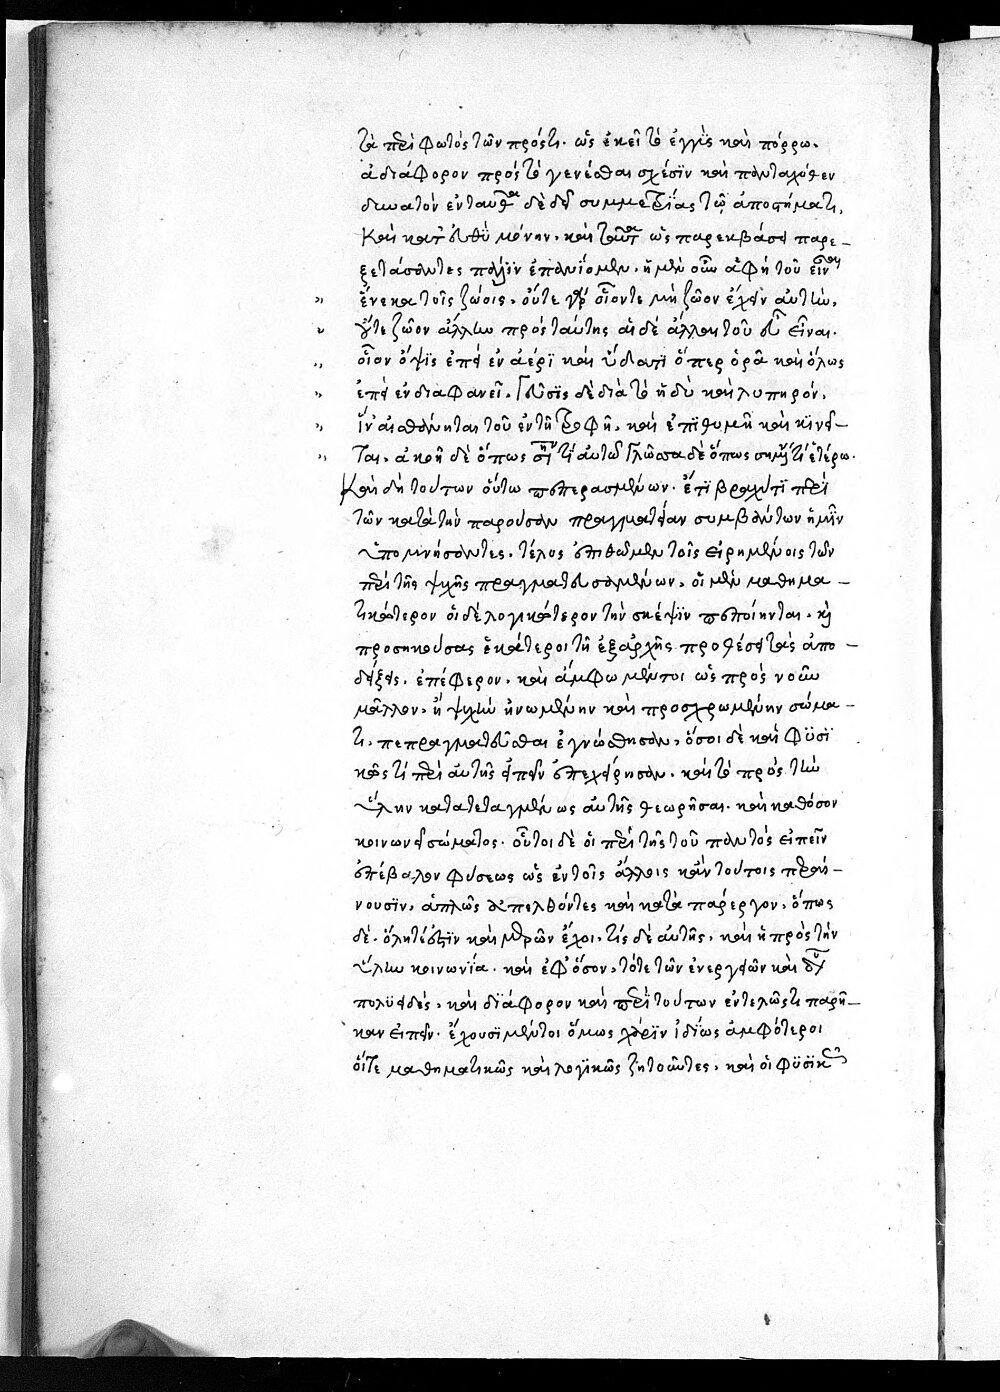 τὰ περὶ φωτὸς τῶν πρόστι. ὡς ἐκεῖ τὸ ἐγγὺς καὶ πόρρω.
ἀδιάφορον πρὸς τὸ γενέσθαι σχέσιν καὶ πολλαχόθεν
δυνατὸν ἐνταῦθα δὲ δεῖ συμμετρίας τῷ ἀποστήματι,
καὶ κατ' εὐθὺ μόνην. καὶ ταῦτα ὡς παρεκβάσει παρε-
ξετάσαντες πάλιν ἐπανίομεν. ἡ μὲν οὖν ἁφὴ τοῦ εἶναι
ἕνεκα τοῖς ζώοις. οὔτε γὰρ οἷόντε μὴ ζῶον ἔχειν αὐτὴν,
οὔτε ζῶον ἄλλην πρὸς ταύτης αἱ δὲ ἄλλαι τοῦ εὖ εἶναι.
οἷον ὄψις ἐπεὶ ἐν ἀέρι καὶ ὕδατι ὅπερ ὁρᾶ καὶ ὅλως
ἐπεὶ ἐν διαφανεῖ. γεῦσις δὲ διὰ τὸ ἡδὺ καὶ λυπηρόν,
ἵν' αἰσθάνηται τοῦ ἐν τῆ τροφῆ, καὶ ἐπιθυμῆ καὶ κινεῖ-
ται. ἀκοὴ δὲ ὅπως σημαίνῃ τί αὐτῶ γλῶσσα δὲ ὅπως σημαίνῃ τί ἑτέρω.
Καὶ δὴ τούτων οὕτω πεπερασμένων. ἔτι βραχύ τι περὶ
τῶν κατὰ τὴν παροῦσαν πραγματείαν συμβαλόντων ἡμῖν
ὑπομνήσαντες, τέλος ἐπιθῶμεν τοῖς εἰρημένοις τῶν
περὶ τῆς ψυχῆς πραγματευσαμένων, οἱ μὲν μαθημα-
τικώτερον οἱ δὲ λογικώτερον τὴν σκέψιν πεποίηνται. καὶ
προσηκούσας ἑκάτεροι τῆ ἐξαρχῆς προθέσει τὰς ἀπο-
δείξεις, ἐπέφερον. καὶ ἄμφω μέντοι ὡς πρὸς νοῦν
μᾶλλον, ἢ ψυχὴν ἡνωμένην καὶ προσχρωμένην σώμα-
τι, πεπραγματεῦσθαι ἐγνώσθησαν, ὅσοι δὲ καὶ φυσι
κῶς τί περὶ αὐτῆς εἰπεῖν ἐπεχείρησαν. καὶ τὸ πρὸς τὴν
ὕλην κατατεταγμένως αὐτῆς θεωρῆσαι. καὶ καθόσον
κοινωνεῖ σώματος. οὗτοι δὲ οἱ περὶ τῆς τοῦ παντὸς εἰπεῖν
ἐπέβαλον φύσεως ὡς ἐν τοῖς ἄλλοις κἀν τούτοις περαί-
νουσιν, ἁπλῶς ἐπελθόντες καὶ κατὰ πάρεργον, ὅπως
δὲ. ὅλη τέ ἐστιν καὶ μερῶν ἔχοι, τίς δὲ αὐτῆς, καὶ ἡ πρὸς τὴν
ὕλην κοινωνία. καὶ ἐφ' ὅσον, τότε τῶν ἐνεργειῶν καὶ
πολυειδὲς, καὶ διάφορον καὶ περὶ τούτων ἐντελῶς τι παρῆ-
καν εἰπεῖν. ἔχουσι μέντοι ὅμως χάριν ἰδίως ἀμφότεροι
οἵτε μαθηματικῶς καὶ λογικῶς ζητοῦντες, καὶ οἱ φυσικῶς